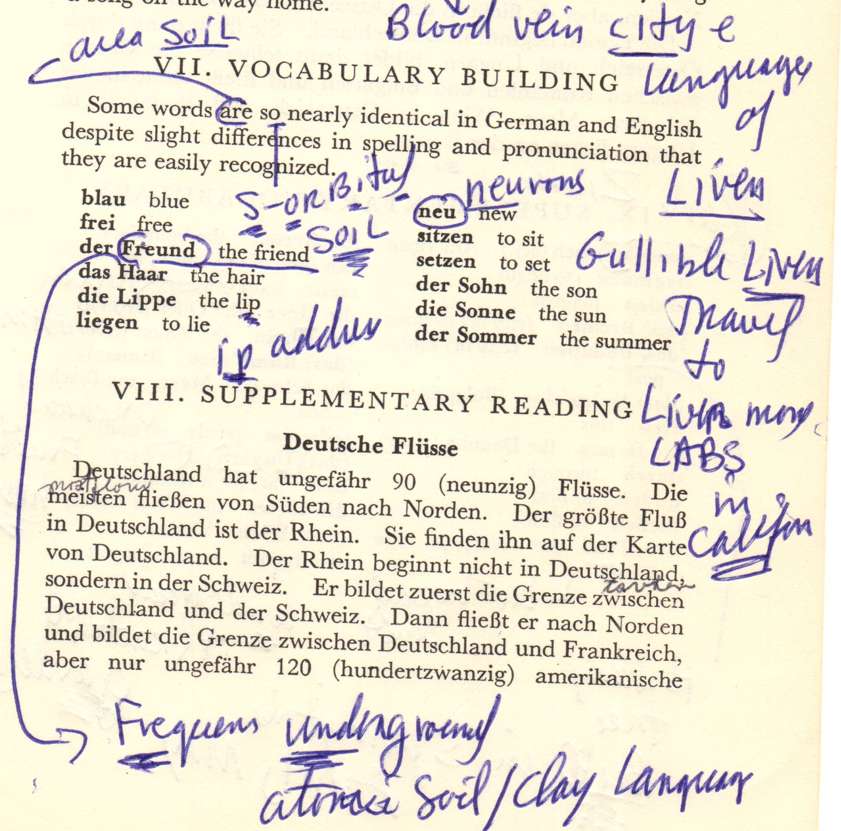 song on the way home.
Blood vein city e
area SOIL
VII. VOCABULARY BUILDING
Language
of
Some words are so nearly identical in German and English
despite slight differences in spelling and pronunciation that
they are easily recognized.
S-ORBital
SOIL
neurons
Liver
blau blue
frei free
der Freund the friend
das Haar the hair
die Lippe the lip
liegen to lie
neu new
sitzen to sit
setzen to set
der Sohn the son
die Sonne the sun
der Sommer the summer
Gullible Liver
Travel
to
Liver
LABS
in
ip address
VIII. SUPPLEMENTARY READING
Deutsche Flüsse
Deutschland hat ungefähr 90 (neunzig) Flüsse. Die
meisten fließen von Süden nach Norden. Der größte Fluß
in Deutschland ist der Rhein. Sie finden ihn auf der Karte
von Deutschland. Der Rhein beginnt nicht in Deutschland,
sondern in der Schweiz. Er bildet zuerst die Grenze zwischen
Deutschland und der Schweiz. Dann fließt er nach Norden
und bildet die Grenze zwischen Deutschland und Frankreich,
aber nur ungefähr 120 (hundertzwanzig) amerikanische
underground
Soil/Clay Language